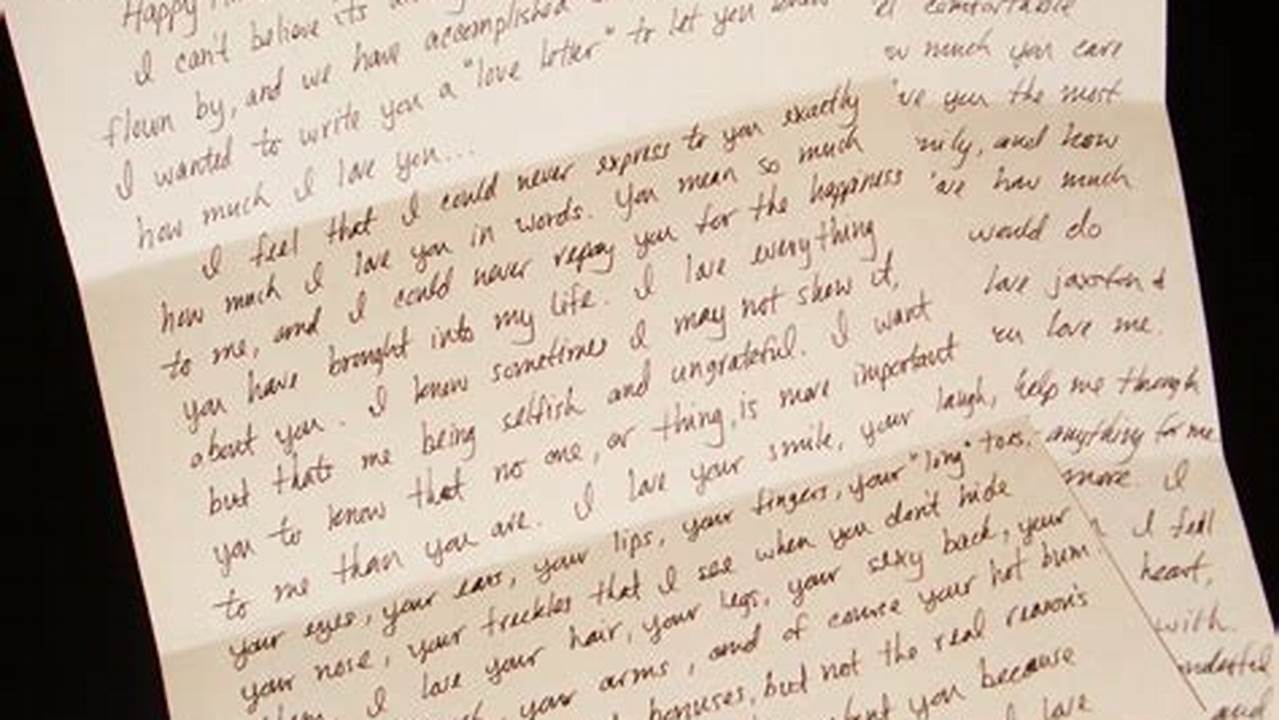 Happy
I can't believe its
flown by, and we have accomplished
I wanted to write you a "love letter" to let you know
how much I love you...
I feel that I could never express to you exactly
how much I love you in words. You mean so much
to me, and I could never repay you for the happiness
you have brought into my life. I love everything
about you. I know sometimes I may not show it,
but thats me being selfish and ungrateful. I want
you to know that no one, or thing, is more important
to me than you are. I love your smile, your laugh,
your eyes, your ears, your lips, your fingers, your "long" toes,
your nose, your freckles that I see when you don't hide
I love your hair, your legs, your sexy back, your
your arms, and of course your hot bum
bonuses, but not the real reason's
you because
I love
comfortable
much you care
've you the most
and how
've how much
would do
love jaxston &
love me.
help me through
anything for me
more. I
I fell
heart,
with
and